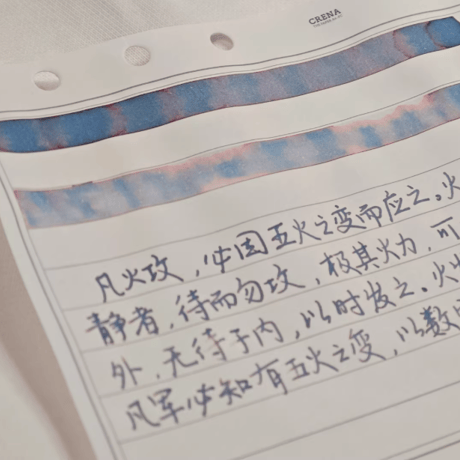 CRENA
凡火攻，必因五火之变而应之。火
静者，待而勿攻，极其火力，可
外，无待于内，以时发之。火
凡军必知有五火之变，以数